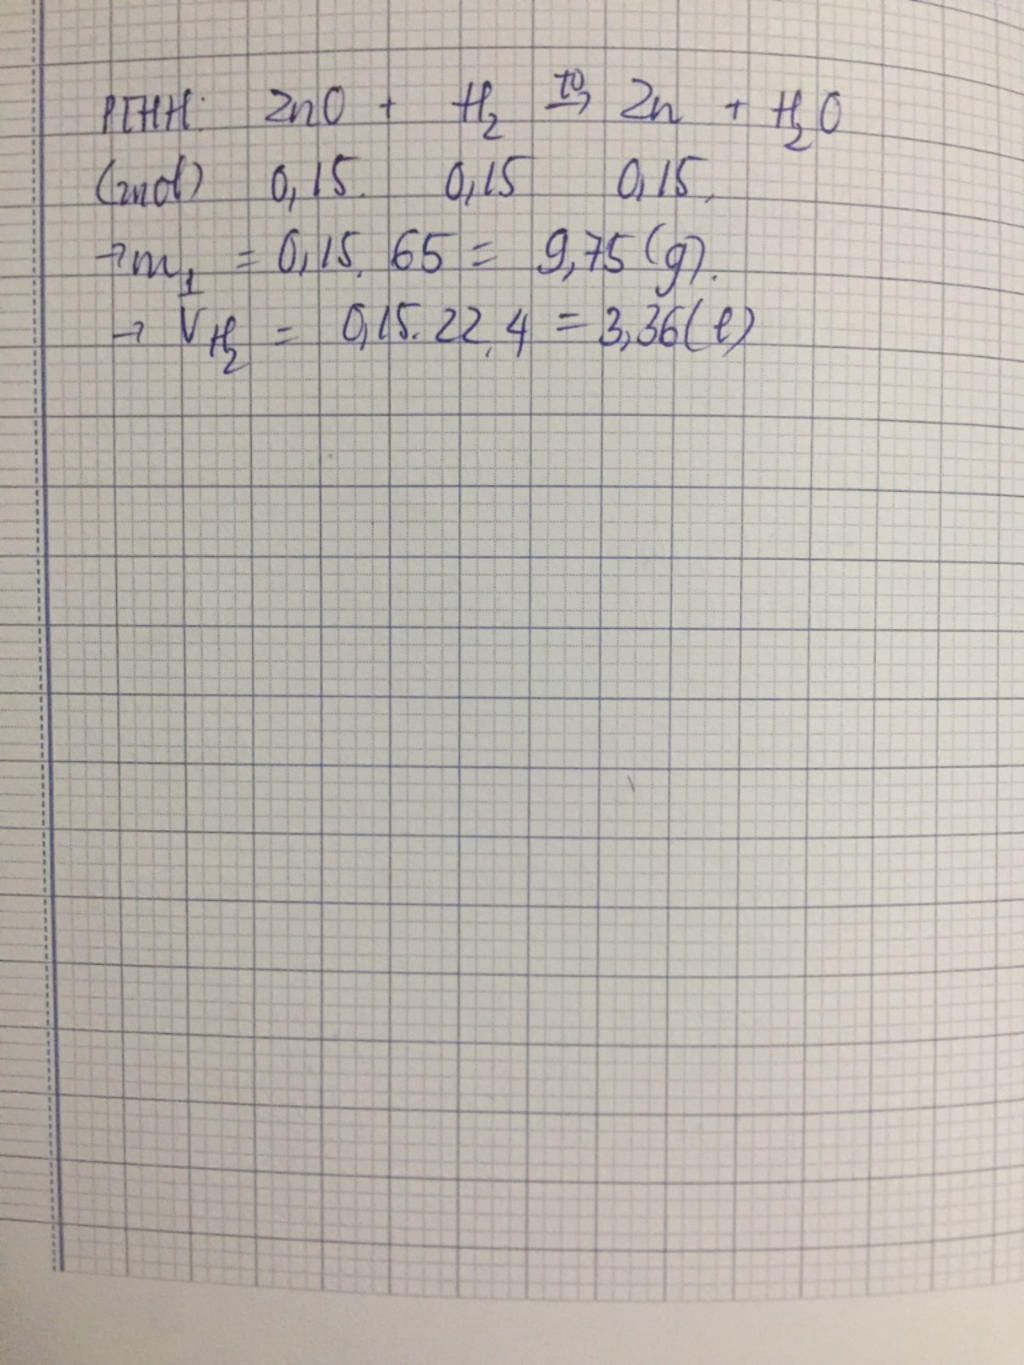 PTHH: ZnO + H₂ t⁰→ Zn + H₂O
(mol) 0,15. 0,15 0,15.
→ m₁ = 0,15. 65 = 9,75 (g).
→ V H₂ = 0,15. 22,4 = 3,36 (l)